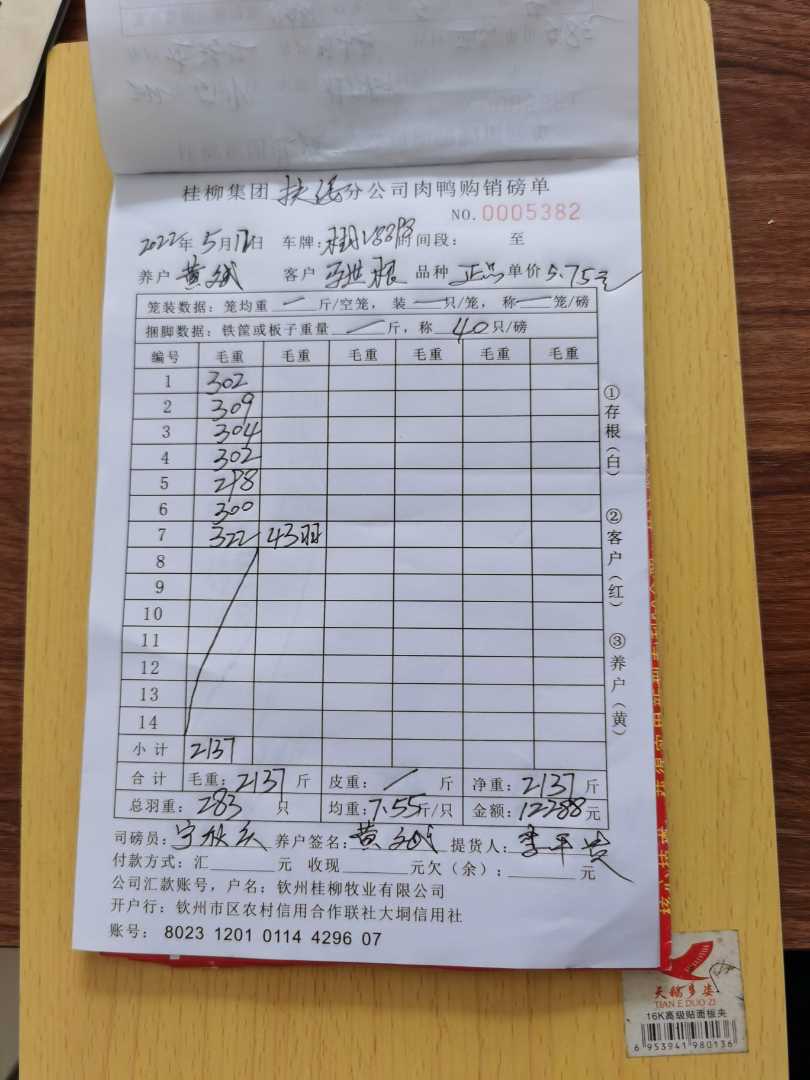 桂柳集团 扶绥 分公司肉鸭购销磅单
NO.0005382
2022年5月12日 车牌: 时间段: 至
养户 黄斌 客户 品种 正品 单价 5.75元
笼装数据:笼均重 — 斤/空笼, 装 — 只/笼, 称 — 笼/磅
捆脚数据:铁筐或板子重量 — 斤, 称 40 只/磅
编号 毛重 毛重 毛重 毛重 毛重 毛重
1 302
2 309
3 304
4 302
5 298
6 300
7 322 43羽
8
9
10
11
12
13
14
小计 2137
合计 毛重: 2137 斤 皮重: / 斤 净重: 2137 斤
总羽重: 283 只 均重: 7.55斤/只 金额: 12288元
司磅员: 养户签名: 黄斌 提货人:
付款方式:汇 元 收现 元欠(余): 元
公司汇款账号,户名:钦州桂柳牧业有限公司
开户行:钦州市区农村信用合作联社大垌信用社
账号: 8023 1201 0114 4296 07
①存根(白) ②客户(红) ③养户(黄)
天鹅多姿
TIAN E DUO ZI
16K高级贴面板夹
6 953941 980136